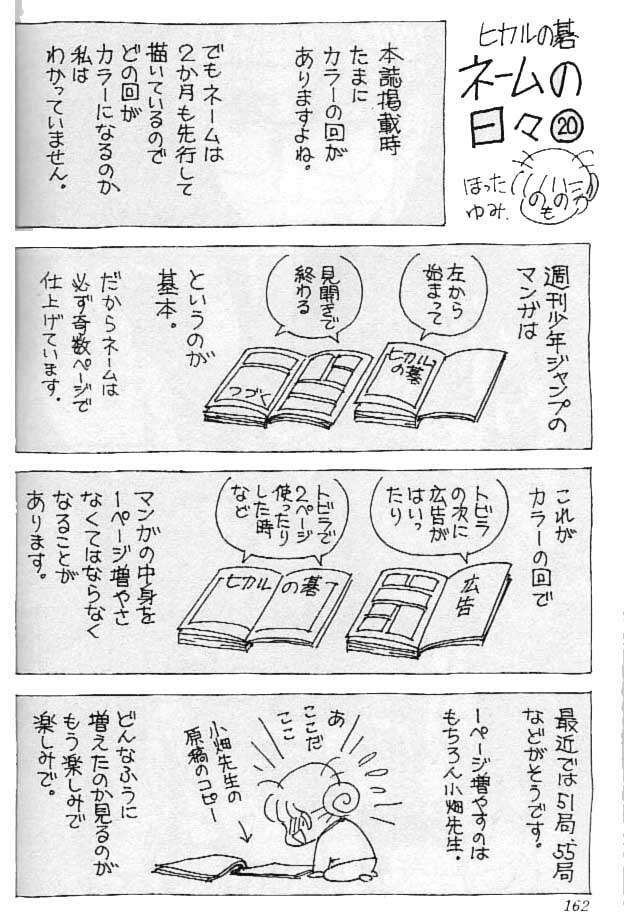 ヒカルの碁
ネームの
日々⑳
ほった
ゆみ
本誌掲載時
たまに
カラーの回が
ありますよね。
でもネームは
２か月も先行して
描いているので
どの回が
カラーになるのか
私は
わかっていません。
週刊少年ジャンプの
マンガは
左から
始まって
ヒカル
の碁
見開きで
終わる
つづく
というのが
基本。
だからネームは
必ず奇数ページで
仕上げています。
これが
カラーの回で
トビラ
の次に
広告が
はいっ
たり
広告
トビラで
２ページ
使ったり
した時
など
ヒカルの碁
マンガの中身を
１ページ増やさ
なくてはならなく
なることが
あります。
最近では51局、55局
などがそうです。
１ページ増やすのは
もちろん小畑先生。
あ
ここだ
ここ
小畑先生の
原稿のコピー
どんなふうに
増えたのか見るのが
もう楽しみで
楽しみで。
162